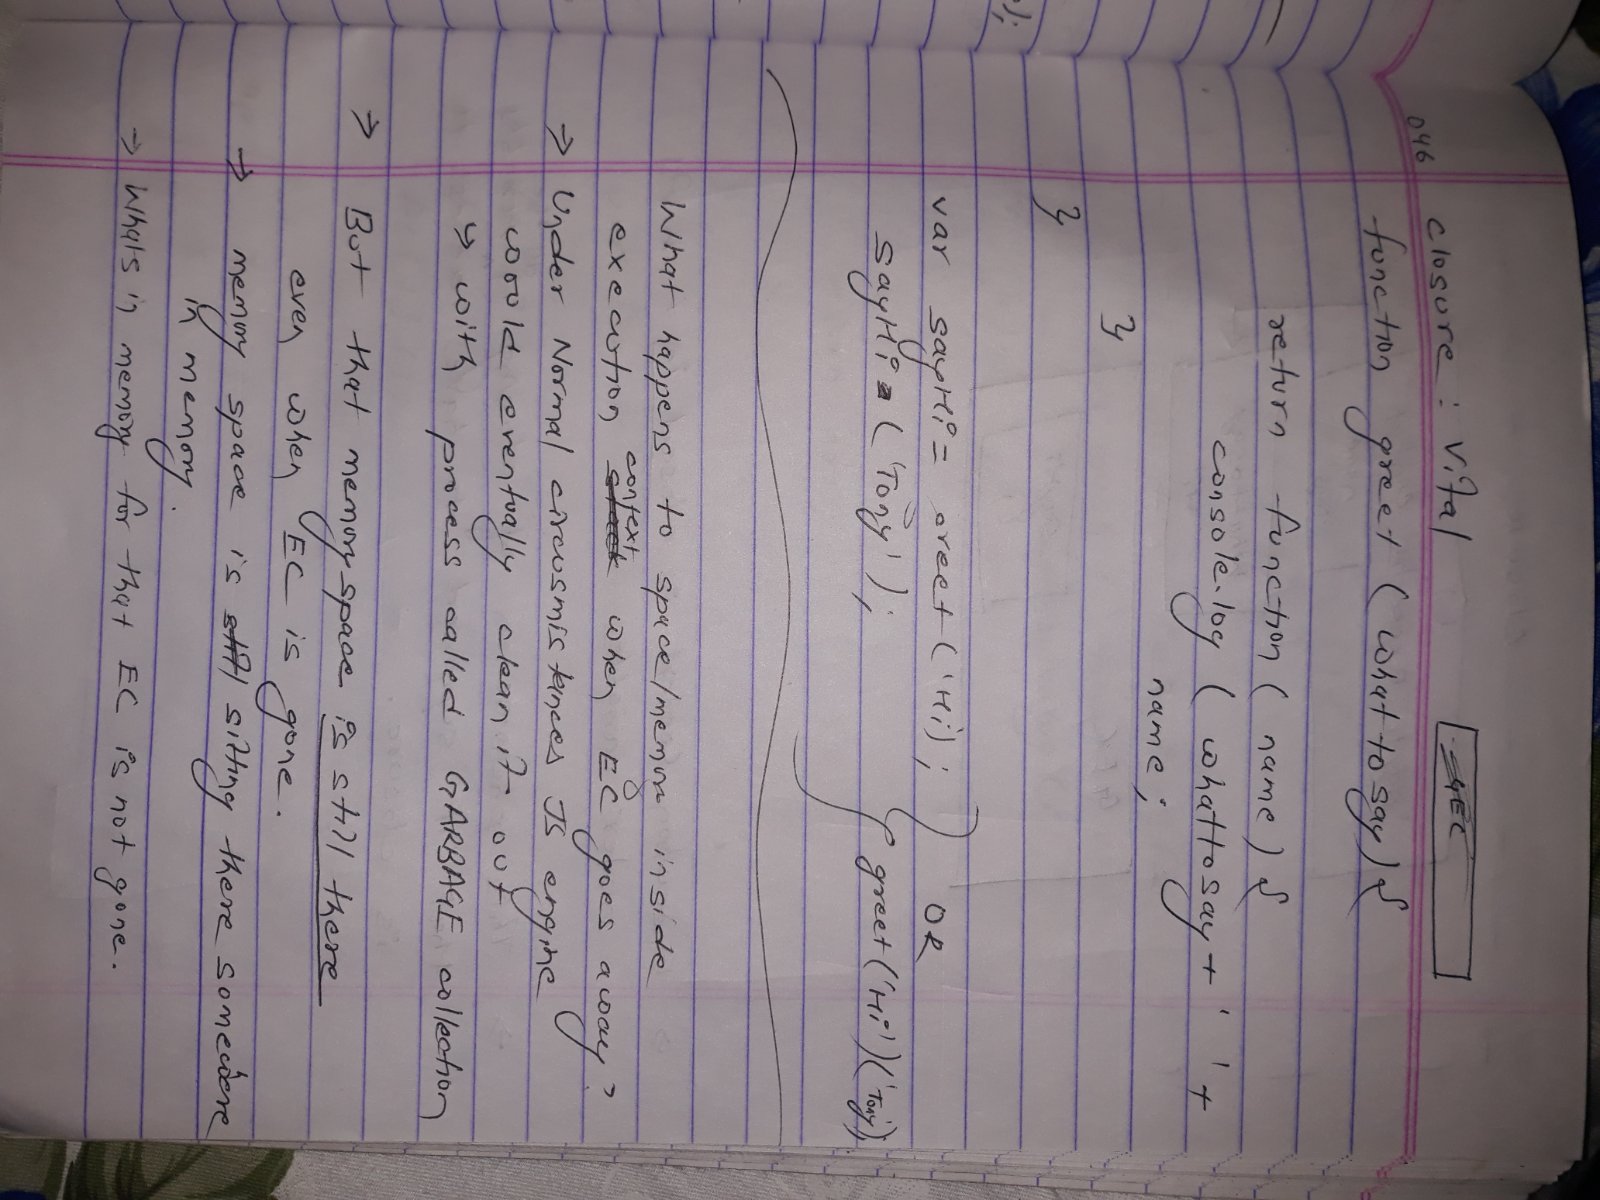 closure : Vital
GEC
046
function greet ( whattosay ) {
return function ( name ) {
console.log ( whattosay + ' ' +
name ;
}
}
var sayHi = greet ( 'Hi ) ;
sayHi ( 'Tony' ) ;
OR
greet ( 'Hi' ) ( 'Tony' ) ;
What happens to space/memory inside
execution context when EC goes away ?
→ Under Normal circusmistances JS engine
would eventually clean it out
↳ with process called GARBAGE collection
→ But that memory space is still there
even when EC is gone.
→ memory space is sitting there somewhere
in memory.
→ Whats in memory for that EC is not gone.
);